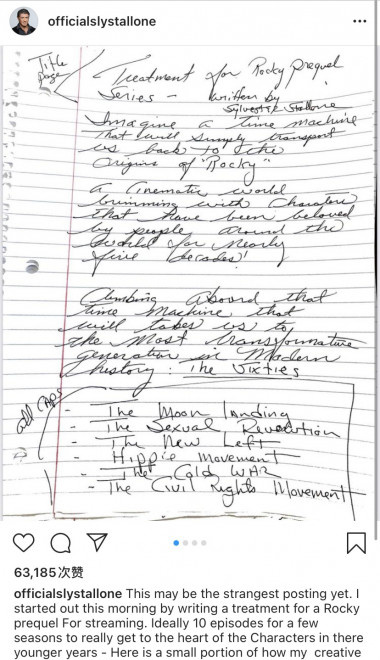 officialslystallone
Title
page
Treatment for Rocky Prequel
Series - written by
Sylvester Stallone
Imagine a time machine
that will simply transport
us back to the
origins of "Rocky"
a Cinematic world
brimming with Characters
that have been beloved
by people around the
World for nearly
five decades!
Climbing Aboard that
time Machine that
will takes us to
the Most transformative
generation in Modern
history: The Sixties
all CAPS
- The Moon Landing
- The Sexual Revolution
- The New Left
- Hippie Movement
- The Cold WAR
- The Civil Rights Movement
63,185次赞
officialslystallone This may be the strangest posting yet. I
started out this morning by writing a treatment for a Rocky
prequel For streaming. Ideally 10 episodes for a few
seasons to really get to the heart of the Characters in there
younger years - Here is a small portion of how my creative